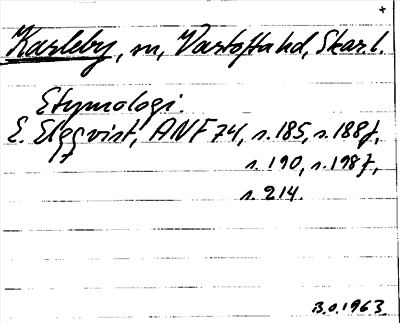 +
Karleby, sn, Vartofta hd, Skar. l.
Etymologi.
E. Elgqvist, ANF 74, s. 185, s. 188 f,
s. 190, s. 198 f,
s. 214.
B.O. 1963